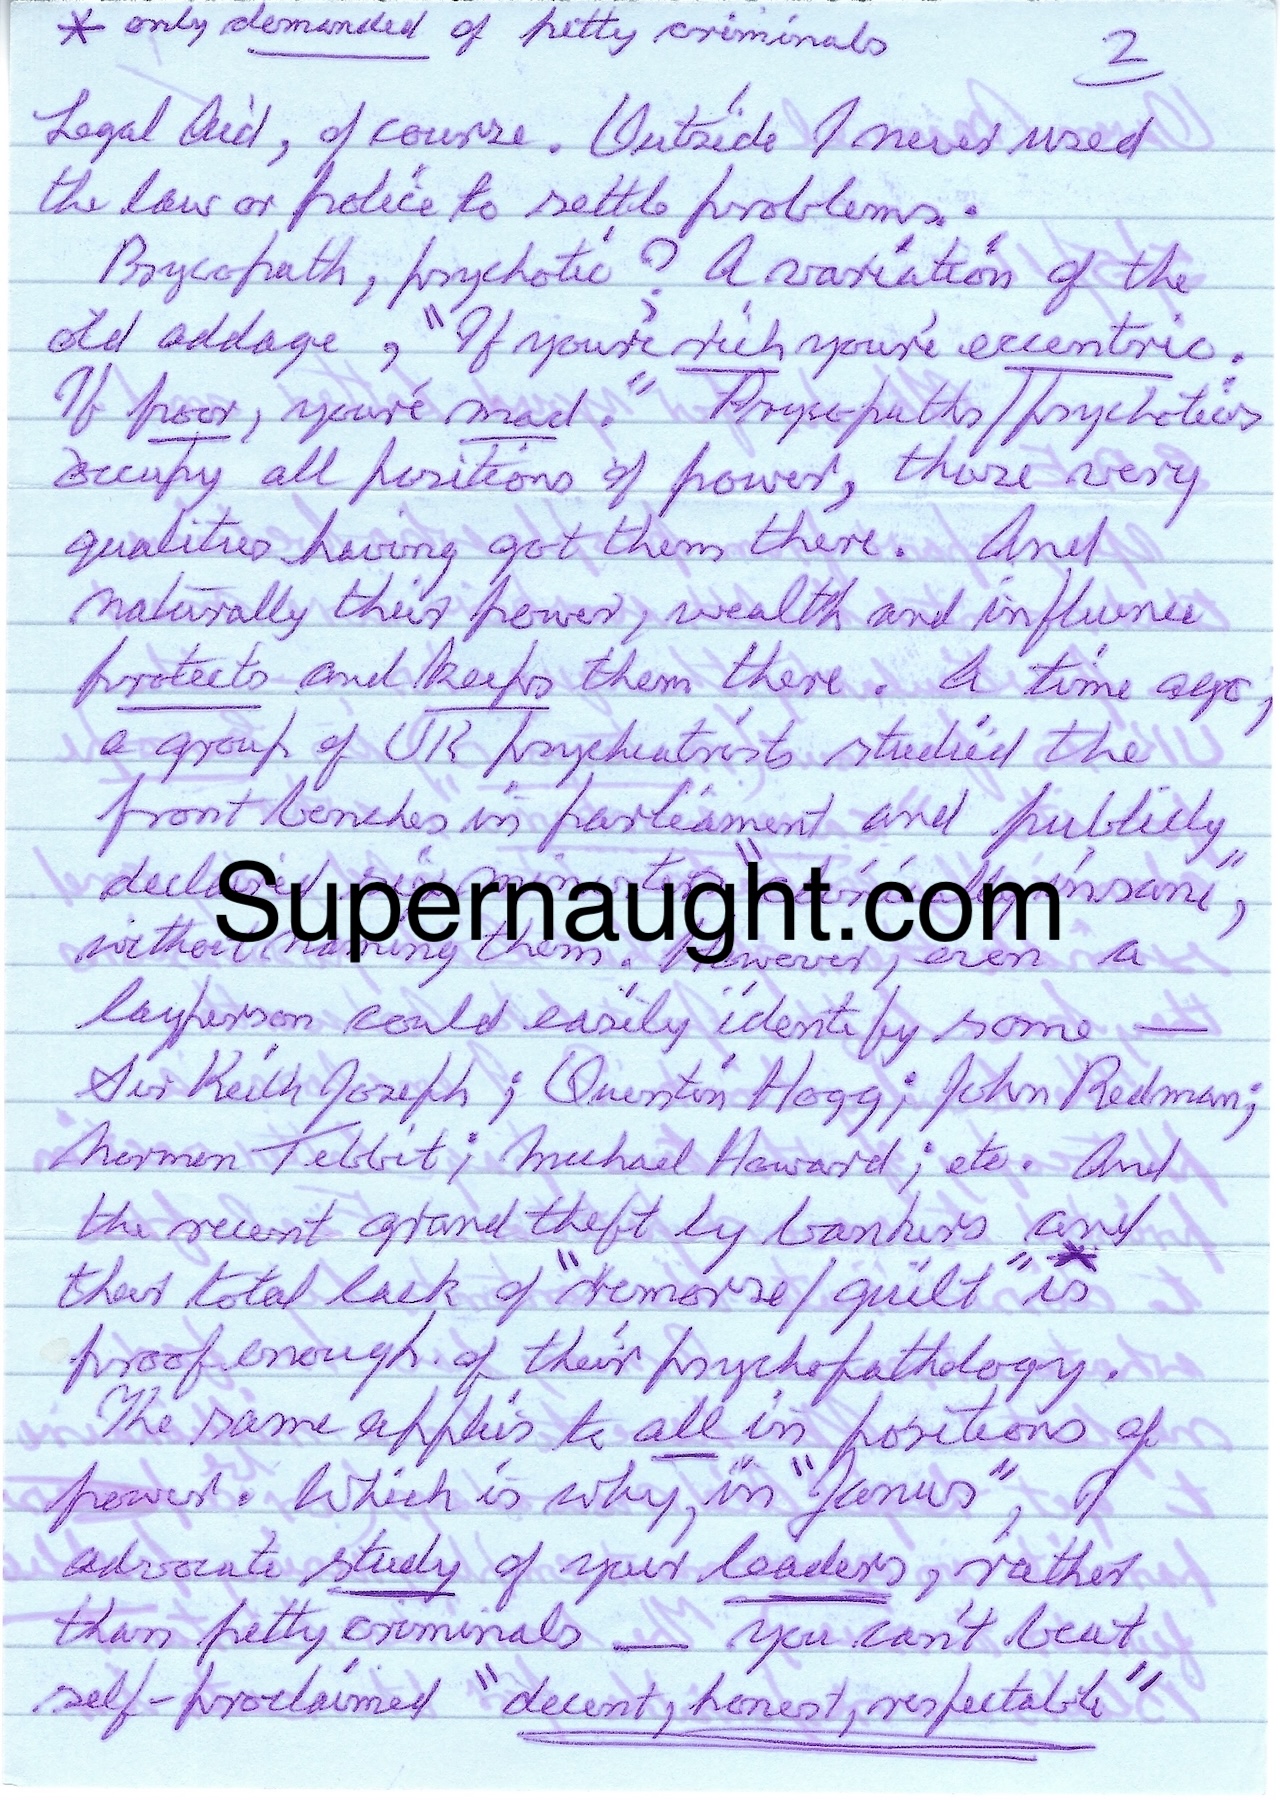 * only demanded of petty criminals
2
Legal Aid, of course. Outside I never used
the law or police to settle problems.
Psycopath, psychotic? A variation of the
old addage, "If you're rich you're eccentric.
If poor, you're mad." Psycopaths/psychotics
occupy all positions of power, those very
qualities having got them there. And
naturally their power, wealth and influence
protects and keeps them there. A time ago,
a group of UK psychiatrists studied the
front benches in parliament and publicly
declared six ministers "clinically insane",
Supernaught.com
without naming them. However, even a
layperson could easily identify some —
Sir Keith Joseph; Quentin Hogg; John Redman;
Norman Tebbit; Michael Howard; etc. And
the recent grand theft by bankers and
their total lack of "remorse/guilt"* is
proof enough of their psychopathology.
The same applies to all in positions of
power. Which is why, in "Janus", I
advocate study of your leaders, rather
than petty criminals — you can't beat
self-proclaimed "decent, honest, respectable"